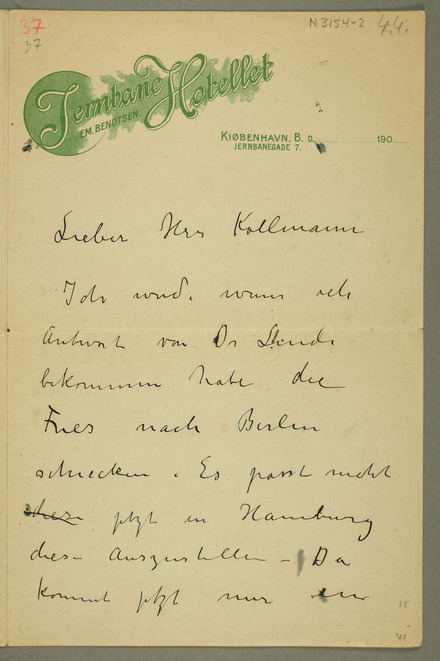 37
37
N 3154-2 44.
Jernbane Hotellet
EM. BENDTSEN.
KIØBENHAVN, B. D. 190
JERNBANEGADE 7.
Lieber Herr Kollmann
Ich werde, wenn ich
Antwort von Dr Linde
bekommen habe die
Fries nach Berlin
schicken. Es passt nicht
jetzt in Hamburg
dies Auszustellen – Da
kommt jetzt nur ein
38
41